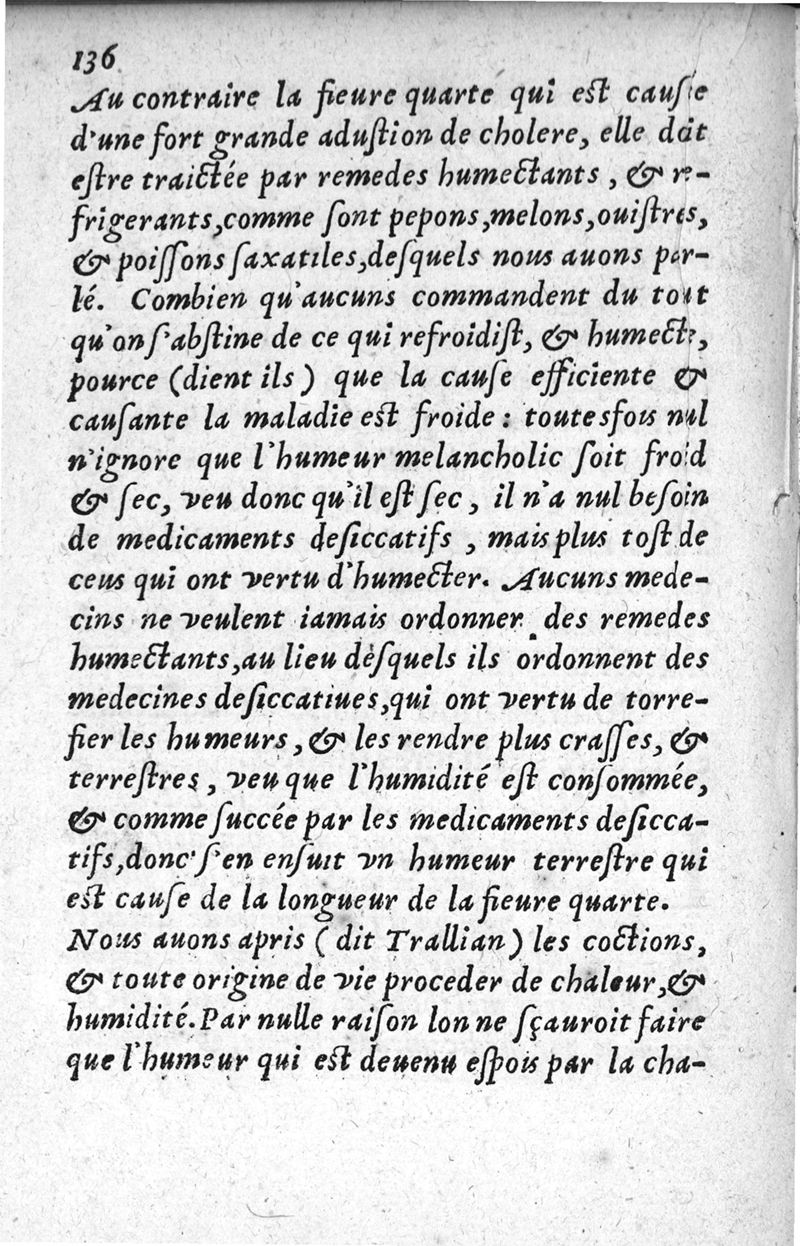 136
Au contraire la fieure quarte qui est cauſee
d'une fort grande aduſtion de cholere, elle doit
eſtre traictée par remedes humectants, & re-
frigerants,comme ſont pepons,melons,ouiſtres,
& poiſſons ſaxatiles,deſquels nous auons par-
lé. Combien qu'aucuns commandent du tout
qu'on ſ'abſtine de ce qui refroidiſt, & humecte,
pource (dient ils) que la cauſe efficiente &
cauſante la maladie est froide : toutesfois nul
n'ignore que l'humeur melancholic ſoit froid
& ſec, veu donc qu'il eſt ſec, il n'a nul beſoin
de medicaments deſiccatifs, mais plus toſt de
ceus qui ont vertu d'humecter. Aucuns mede-
cins ne veulent iamais ordonner des remedes
humectants,au lieu deſquels ils ordonnent des
medecines deſiccatiues,qui ont vertu de torre-
fier les humeurs, & les rendre plus craſſes, &
terreſtres, veu que l'humidité est conſommée,
& comme ſuccée par les medicaments deſicca-
tifs,donc ſ'en enſuit vn humeur terreſtre qui
est cauſe de la longueur de la fieure quarte.
Nous auons apris (dit Trallian) les coctions,
& toute origine de vie proceder de chaleur,&
humidité.Par nulle raiſon lon ne ſçauroit faire
que l'humeur qui est deuenu eſpois par la cha-